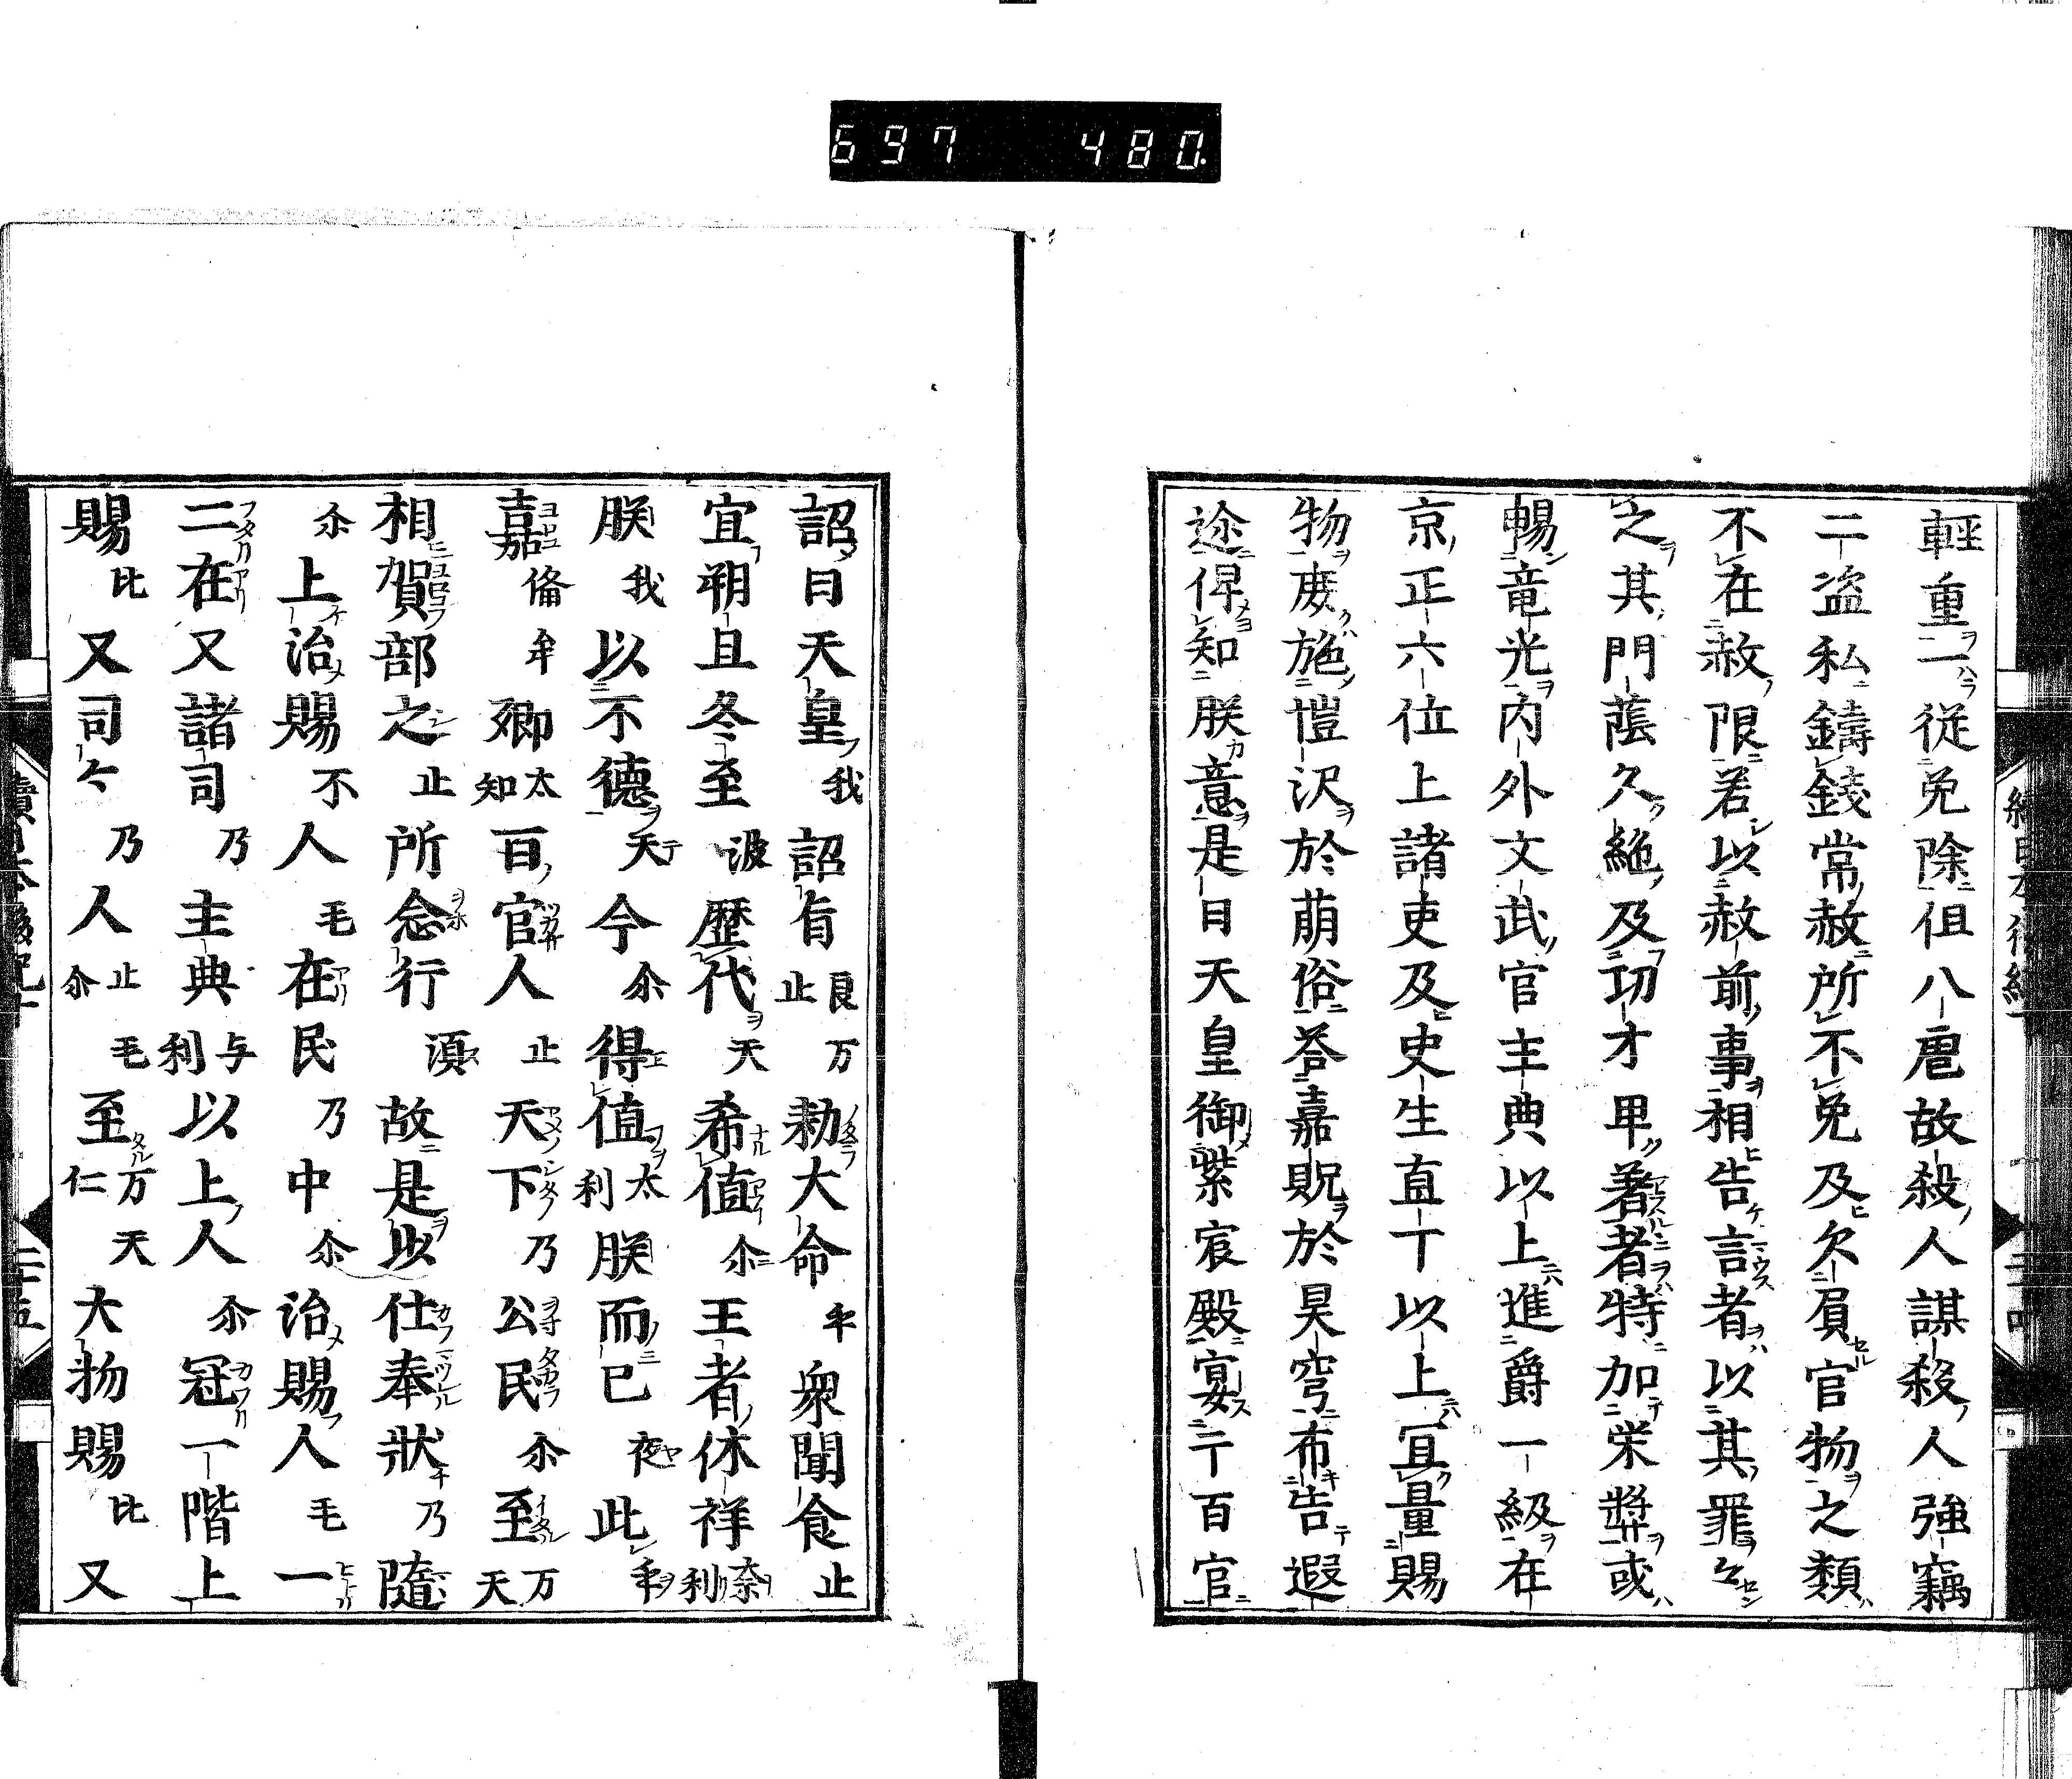 697 480
輕重一從免除但八虐故殺人謀殺人強竊
二盗私鑄錢常赦所不免及欠負官物之類
不在赦限若以赦前事相告言者以其罪々
之其門蔭久絶及功才早著者特加栄奬或
暢竜光内外文武官主典以上進爵一級在
京正六位上諸吏及史生直丁以上冝量賜
物廣施愷沢於萌俗荅嘉貺於昊穹布告遐
迩俾知朕意是日天皇御紫宸殿宴二百官
詔曰天皇我詔旨良止万勅大命乎衆聞食止
宜朔旦冬至波歴代天希値尒王者休祥奈利
朕我以不德天今尒得値太利朕而已夜此乎
嘉偹牟卿太知百官人止天下乃公民尒至万天
相賀部之止所念行須故是以仕奉狀乃隨
尒上治賜不人毛在民乃中尒治賜人毛一
二在又諸司乃主典与利以上人尒冠一階上
賜比又司々乃人止尒毛至万仁天大物賜比又
二十五